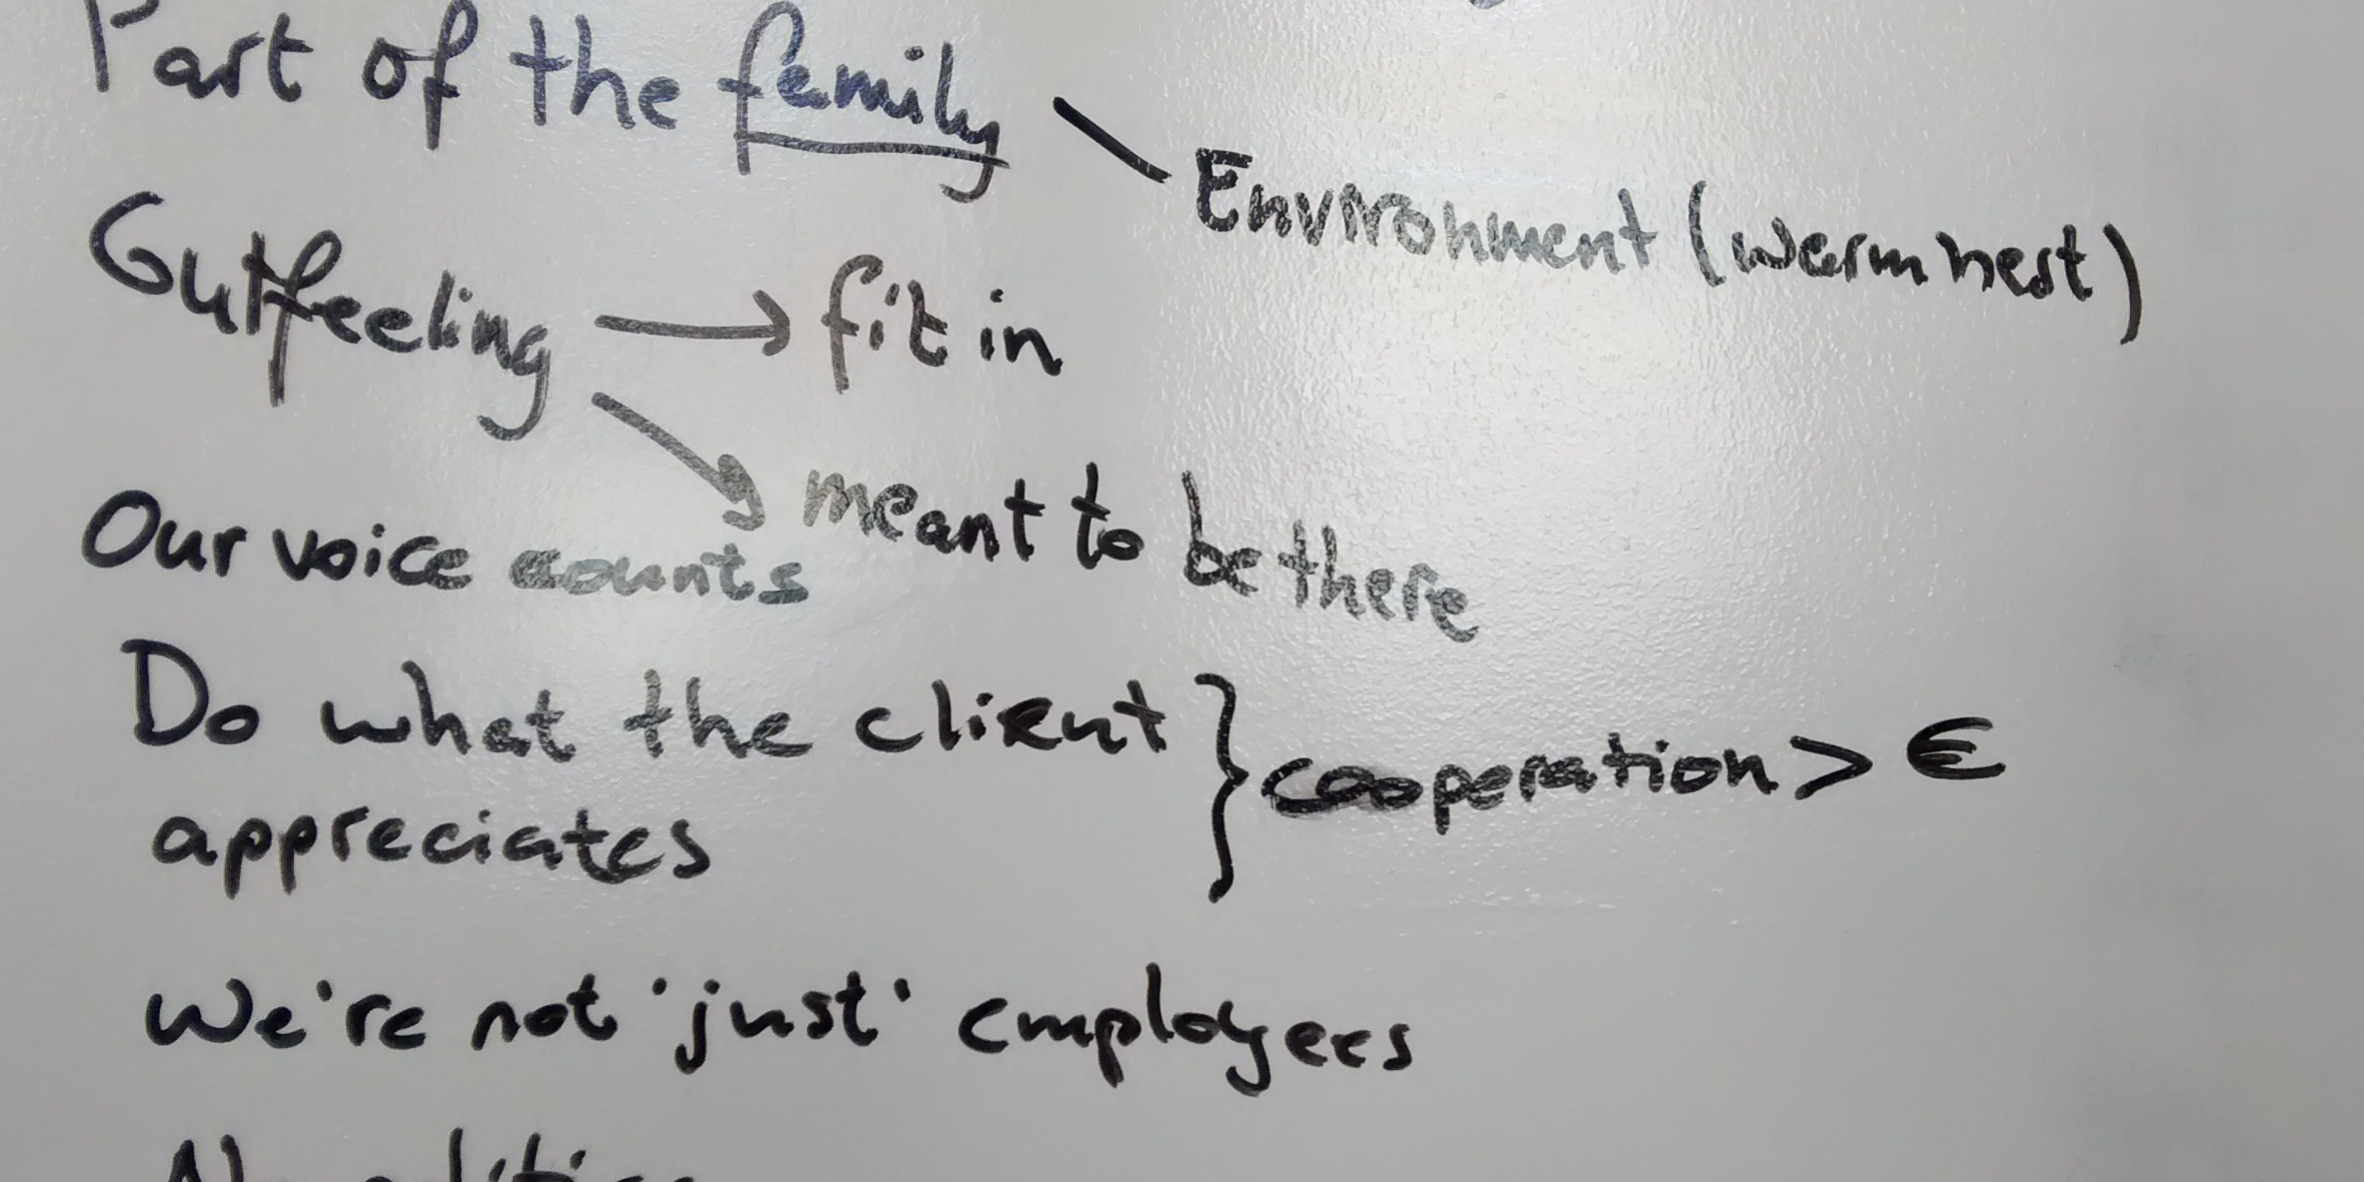 Part of the family \ Environment (warm nest)
Gutfeeling → fit in
↘ meant to be there
Our voice counts
Do what the client
appreciates } cooperation > €
We're not 'just' employees